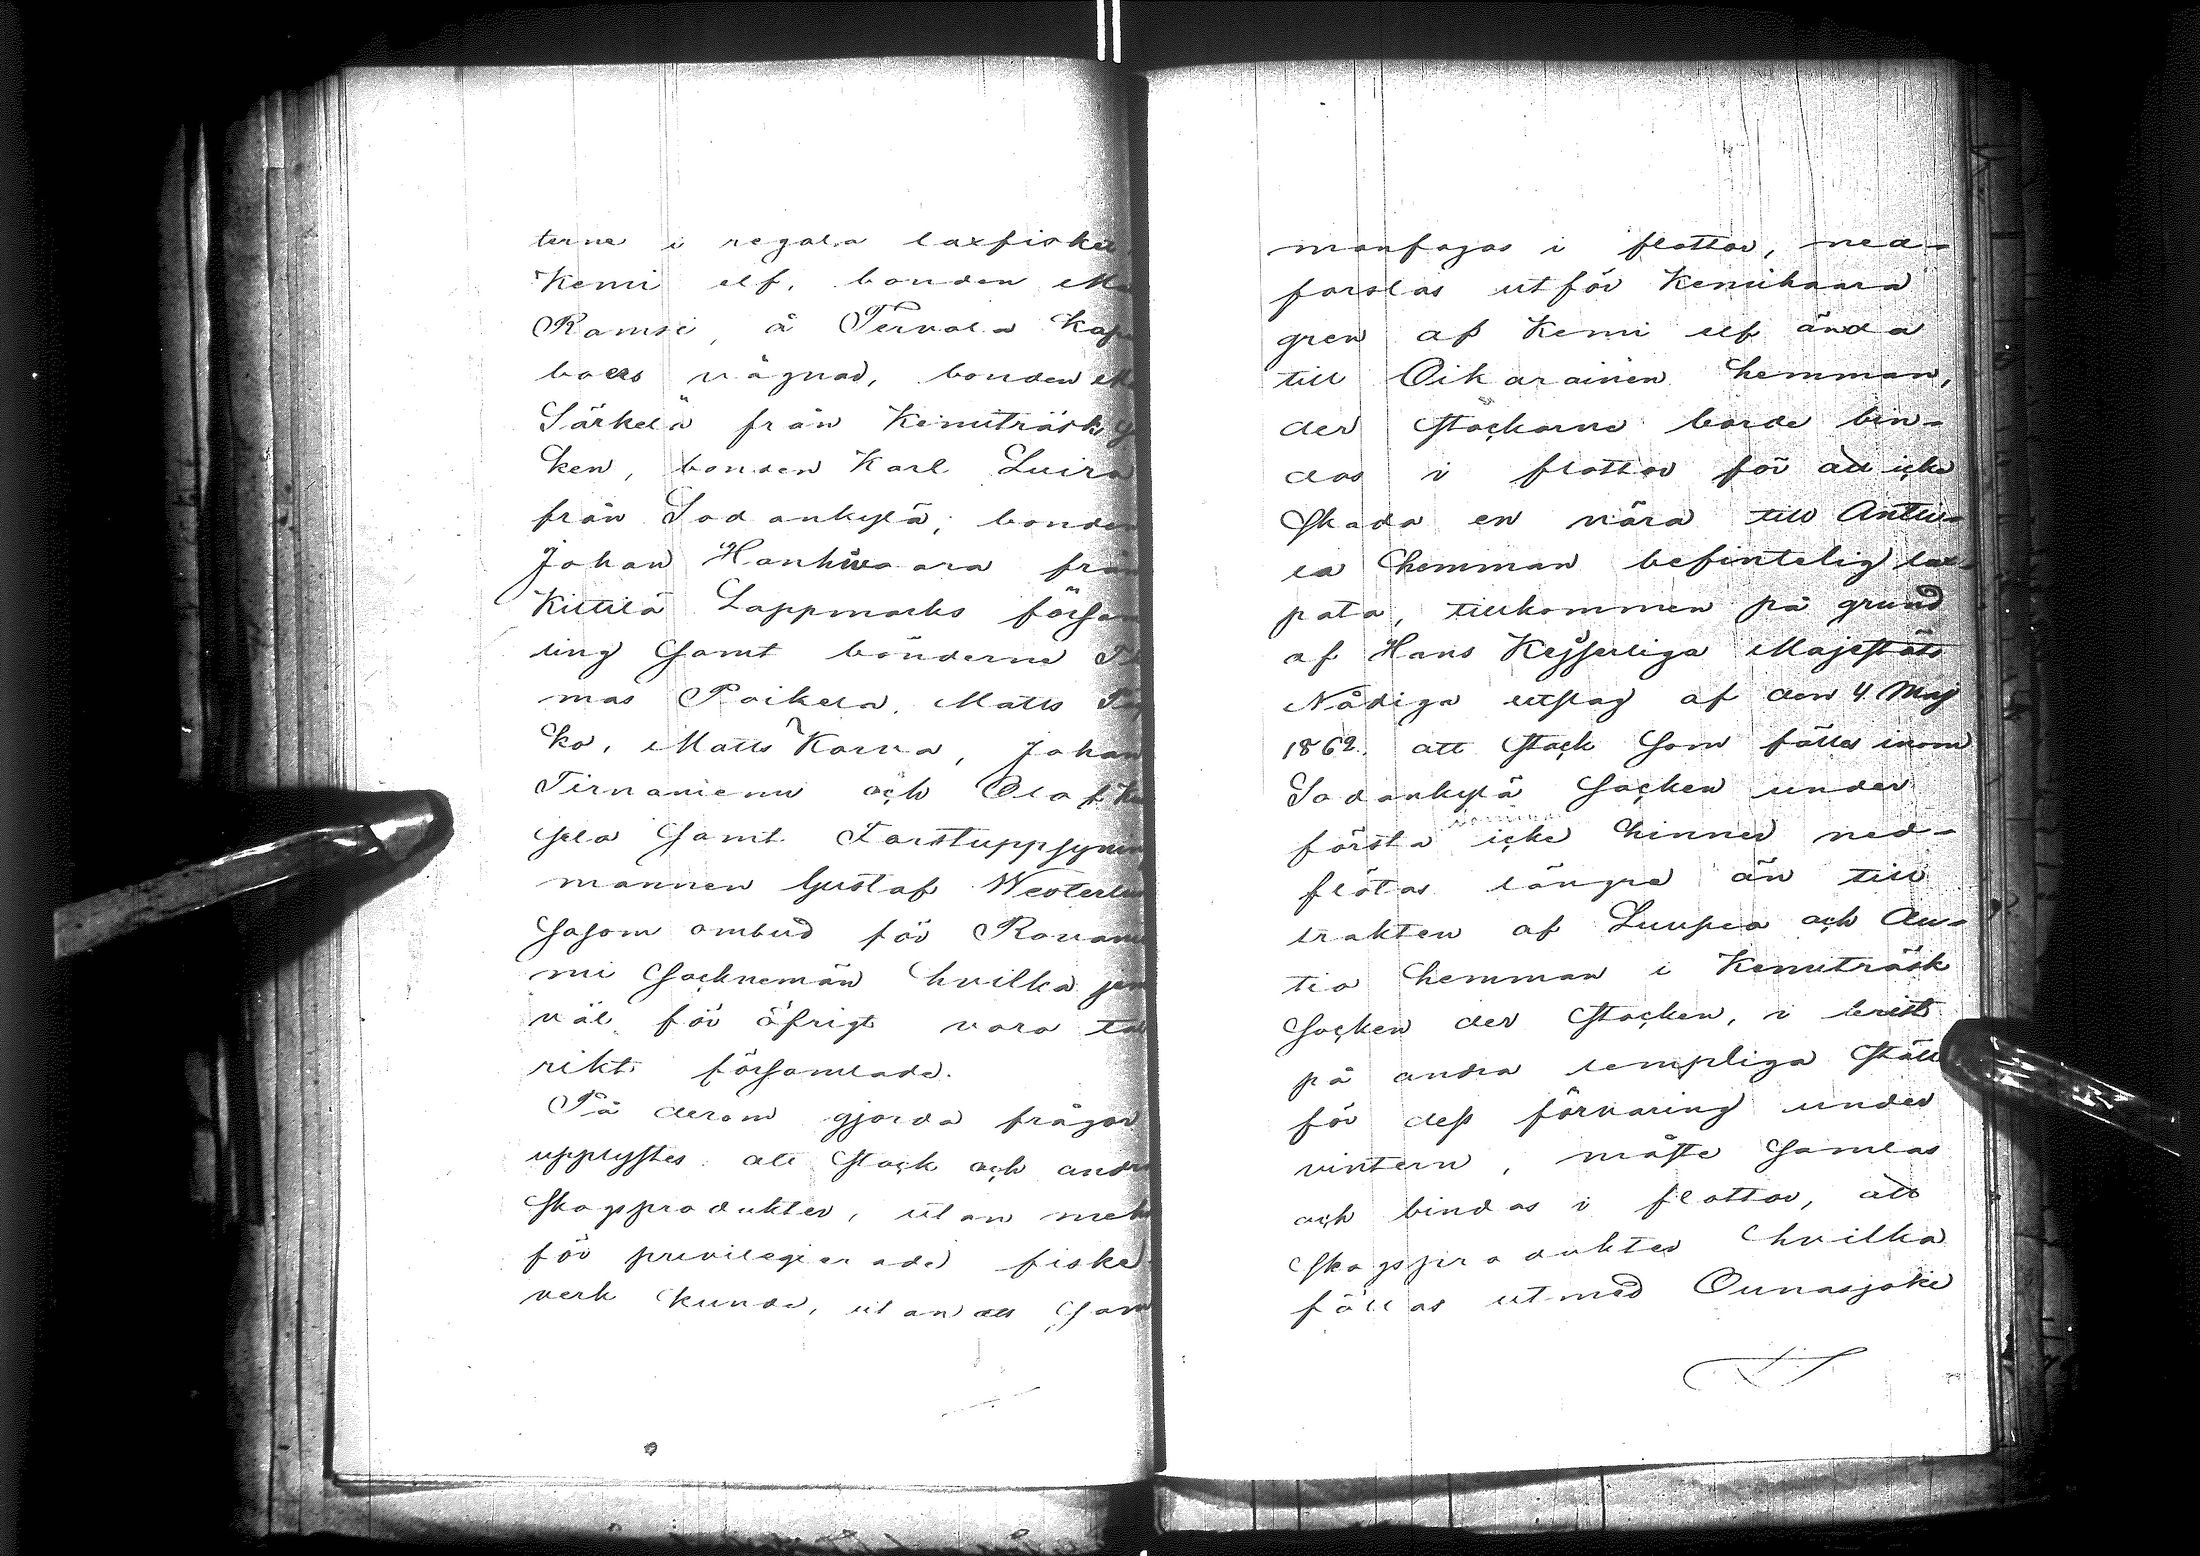 terne i regala laxfisket
Kemi elf, bonden Ma
Ramsi, å Tervola Kap
boers vägnad, bonden
Särkelä från Kemiträsk
ken, bonden Karl Luiro
från Sodankylä, bonden
Johan Hanhivaara från
Kittilä Lappmarks försam
ling samt bönderne To
mas Poikela, Matts
ko, Matts Korva, Johan
Tirnaniemi och Olof
sela samt Forstuppsynin
mannen Gustaf Westerlu
såsom ombud för Rovanie
mi sochnemän hvilka jem
väl för öfrigt voro tal
rikt församlade.
På derom gjorda frågor
upplystes att stock och andra
skogsprodukter, utan mehn
för privilegierade fiske
verk kunde, utan att sam
manfogas i flottor, ned-
forslas utför Kemihaara
gren af Kemi elf ända
till Oikarainen hemman,
der stockarne borde bin-
das i flottor för att icke
skada en nära till Autti-
la hemman befintelig lax-
pata, tillkommen på grund
af Hans Kejserliga Majestäts
Nådiga utslag af den 4 Maj
1862. att stock som fälles inom
Sodankylä socken under
första sommaren icke hinner ned-
flötas längre än till
trakten af Luusua och Au-
tio hemman i Kemiträsk
socken der stocken, i brist
på andra lempliga ställ
för dess förvaring under
vintern, måste samlas
och bindas i flottor, att
skogsprodukter hvilka
fällas utmed Ounasjoki